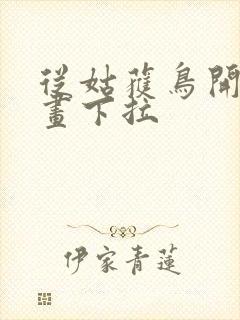 從姑獲鳥開
畫下拉
伊家青蓮